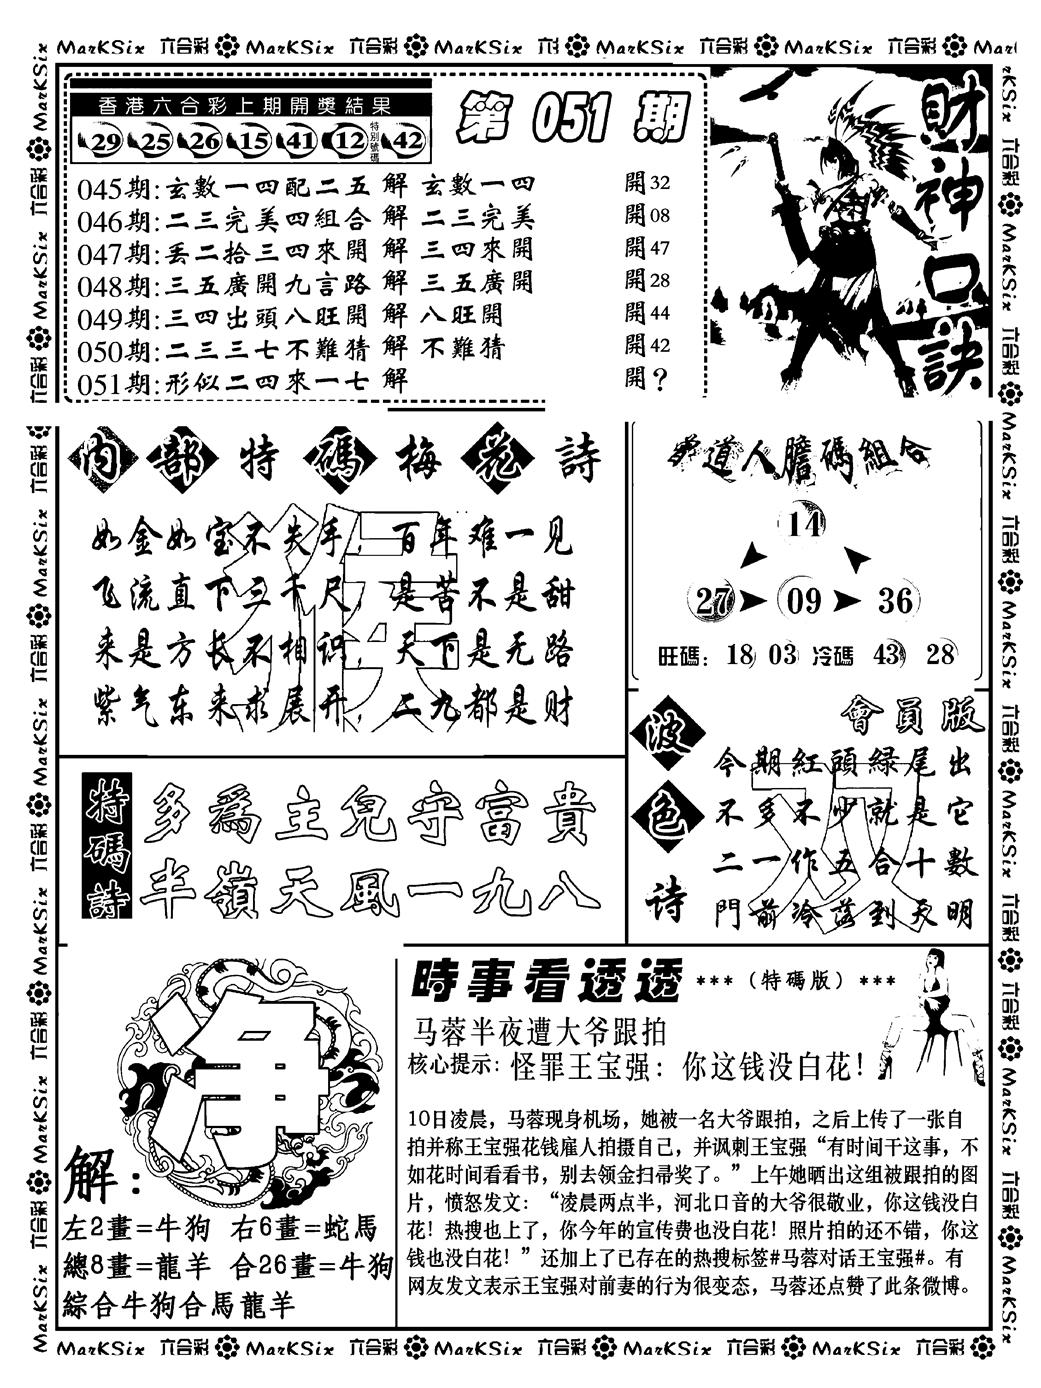 MarKSix 六合彩 MarKSix 六合彩 MarKSix 六合彩 MarKSix 六合彩 MarKSix 六合彩
香港六合彩上期開獎結果
29 25 26 15 41 12 特別號碼 42
第 051 期
045期:玄數一四配二五 解 玄數一四 開32
046期:二三完美四組合 解 二三完美 開08
047期:丢二拾三四來開 解 三四來開 開47
048期:三五廣開九言路 解 三五廣開 開28
049期:三四出頭八旺開 解 八旺開 開44
050期:二三三七不難猜 解 不難猜 開42
051期:形似二四來一七 解 開?
財神口訣
内部特碼梅花詩
猴
如金如宝不失手，百年难一见
飞流直下三千尺，是苦不是甜
来是方长不相识，天下是无路
紫气东来求展开，二九都是财
道人膽碼組合
14
27 09 36
旺碼：18 03 冷碼 43 28
波色诗
會員版
双
今期紅頭緑尾出
不多不少就是它
二一作五合十數
門前冷落到天明
特碼詩
多為主兒守富貴
半嶺天風一九八
净
解：
左2畫=牛狗 右6畫=蛇馬
總8畫=龍羊 合26畫=牛狗
綜合牛狗合馬龍羊
時事看透透 ***（特碼版）***
马蓉半夜遭大爷跟拍
核心提示：怪罪王宝强：你这钱没白花！
10日凌晨，马蓉现身机场，她被一名大爷跟拍，之后上传了一张自
拍并称王宝强花钱雇人拍摄自己，并讽刺王宝强“有时间干这事，不
如花时间看看书，别去领金扫帚奖了。” 上午她晒出这组被跟拍的图
片，愤怒发文：“凌晨两点半，河北口音的大爷很敬业，你这钱没白
花！热搜也上了，你今年的宣传费也没白花！照片拍的还不错，你这
钱也没白花！”还加上了已存在的热搜标签#马蓉对话王宝强#。有
网友发文表示王宝强对前妻的行为很变态，马蓉还点赞了此条微博。
MarKSix 六合彩 MarKSix 六合彩 MarKSix 六合彩 MarKSix 六合彩 MarKSix 六合彩